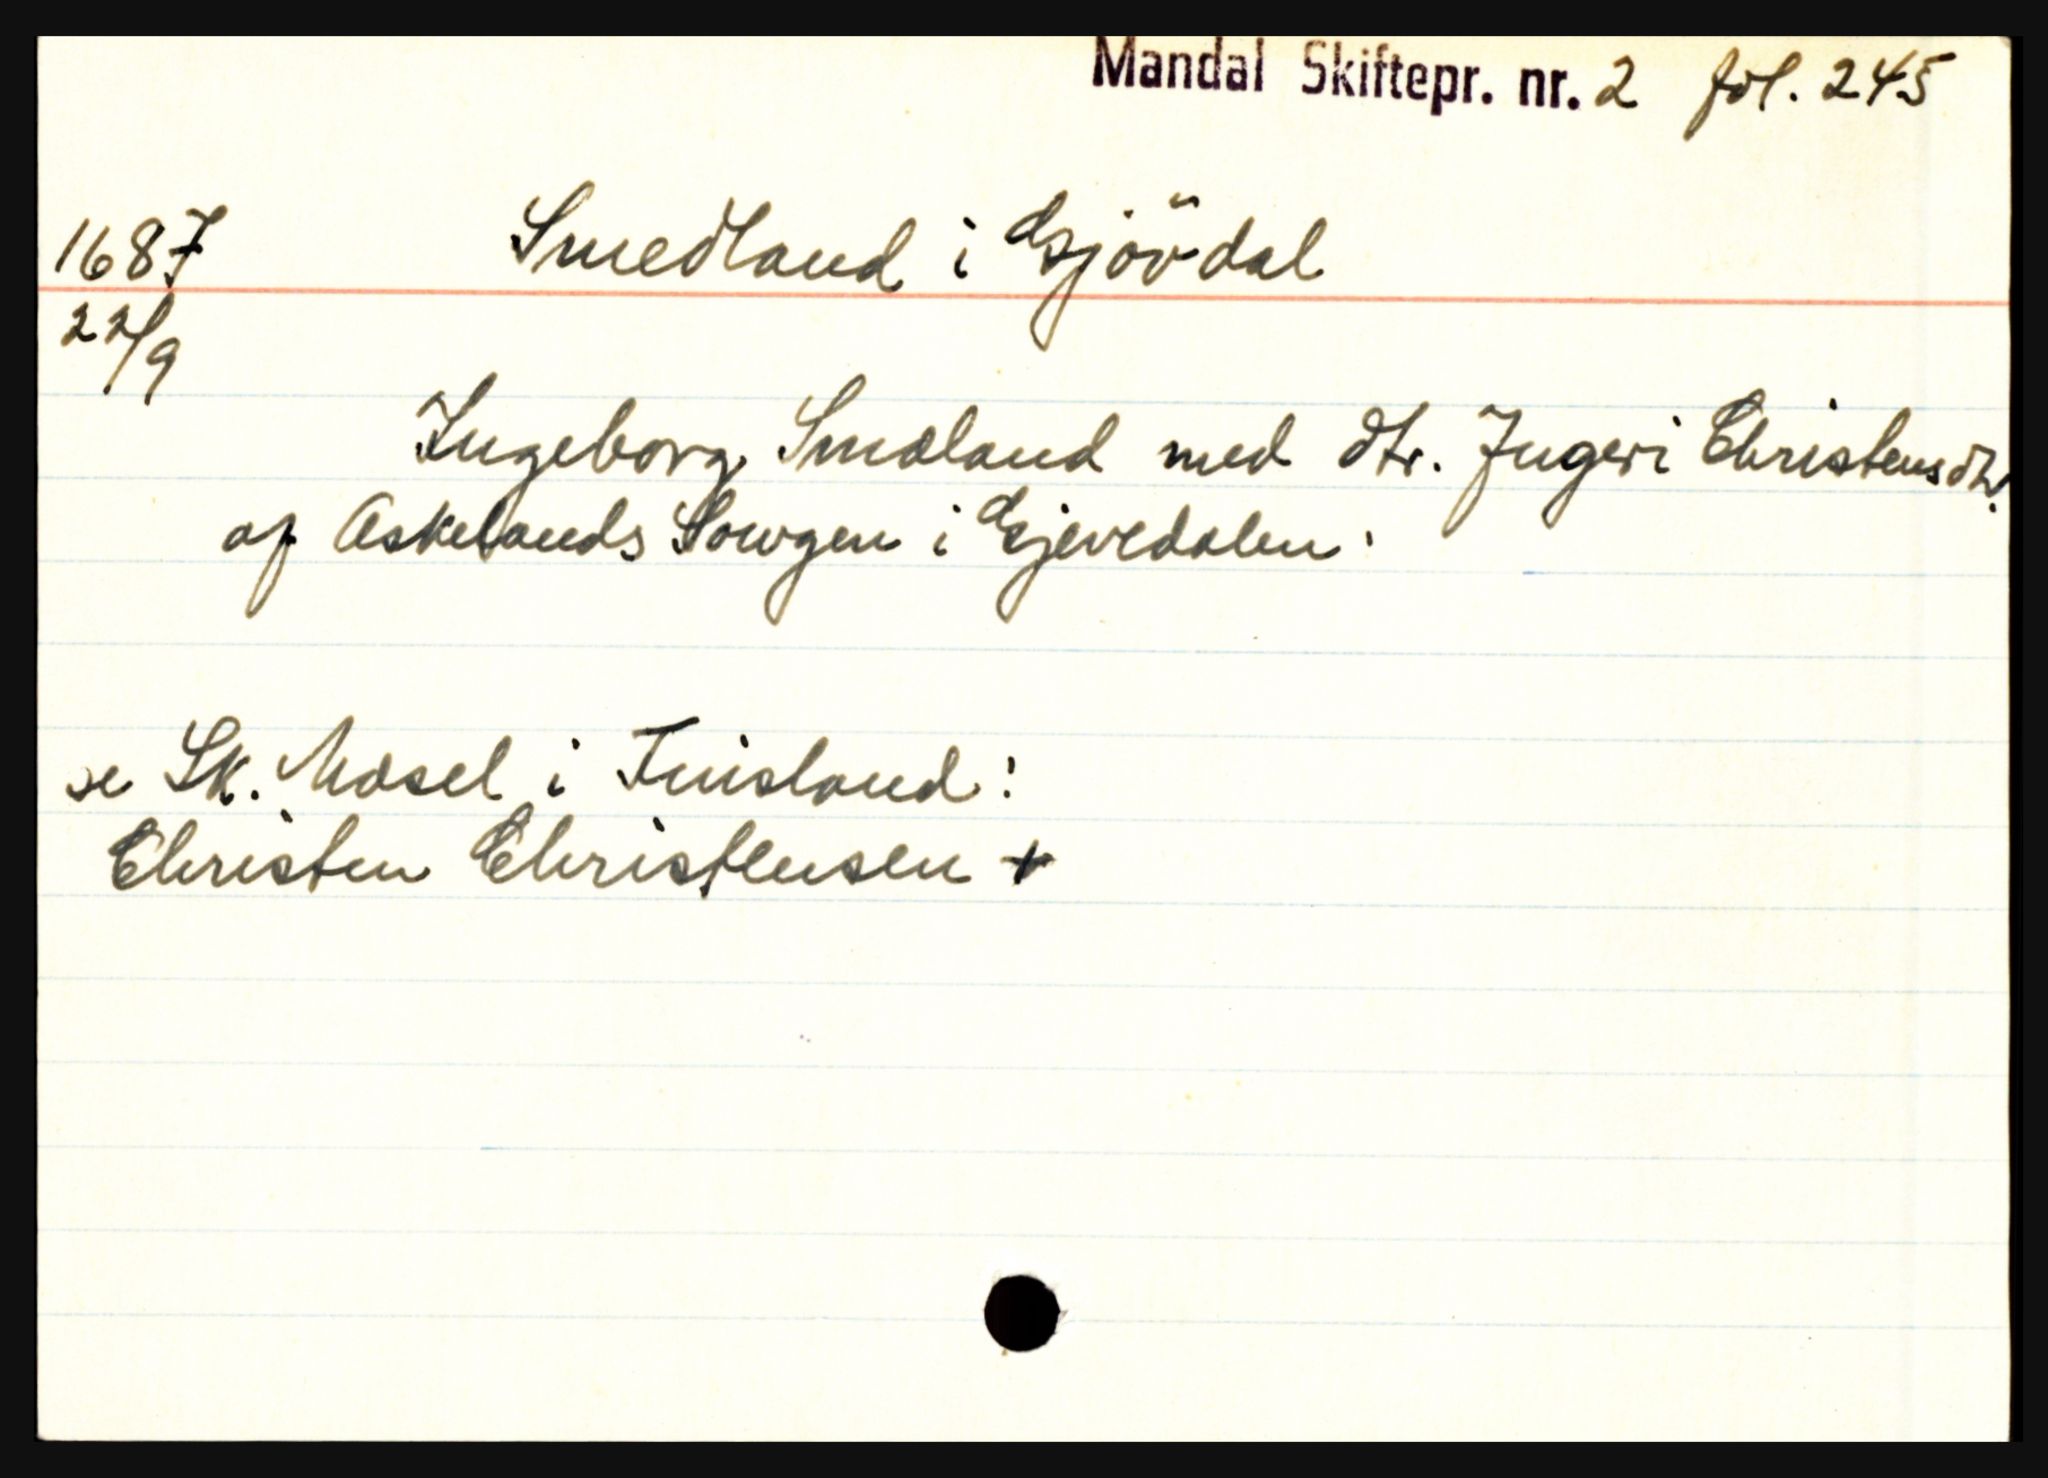 Mandal Skiftepr. nr. 2 fol. 245
1687 Smedland i Gjövdal
22/9
Ingeborg Smedland med dtr. Ingeri Christensdtr.
af Askelands Sowgen i Gjevedalen.
se Sk. Mosel i Finsland:
Christen Christensen +